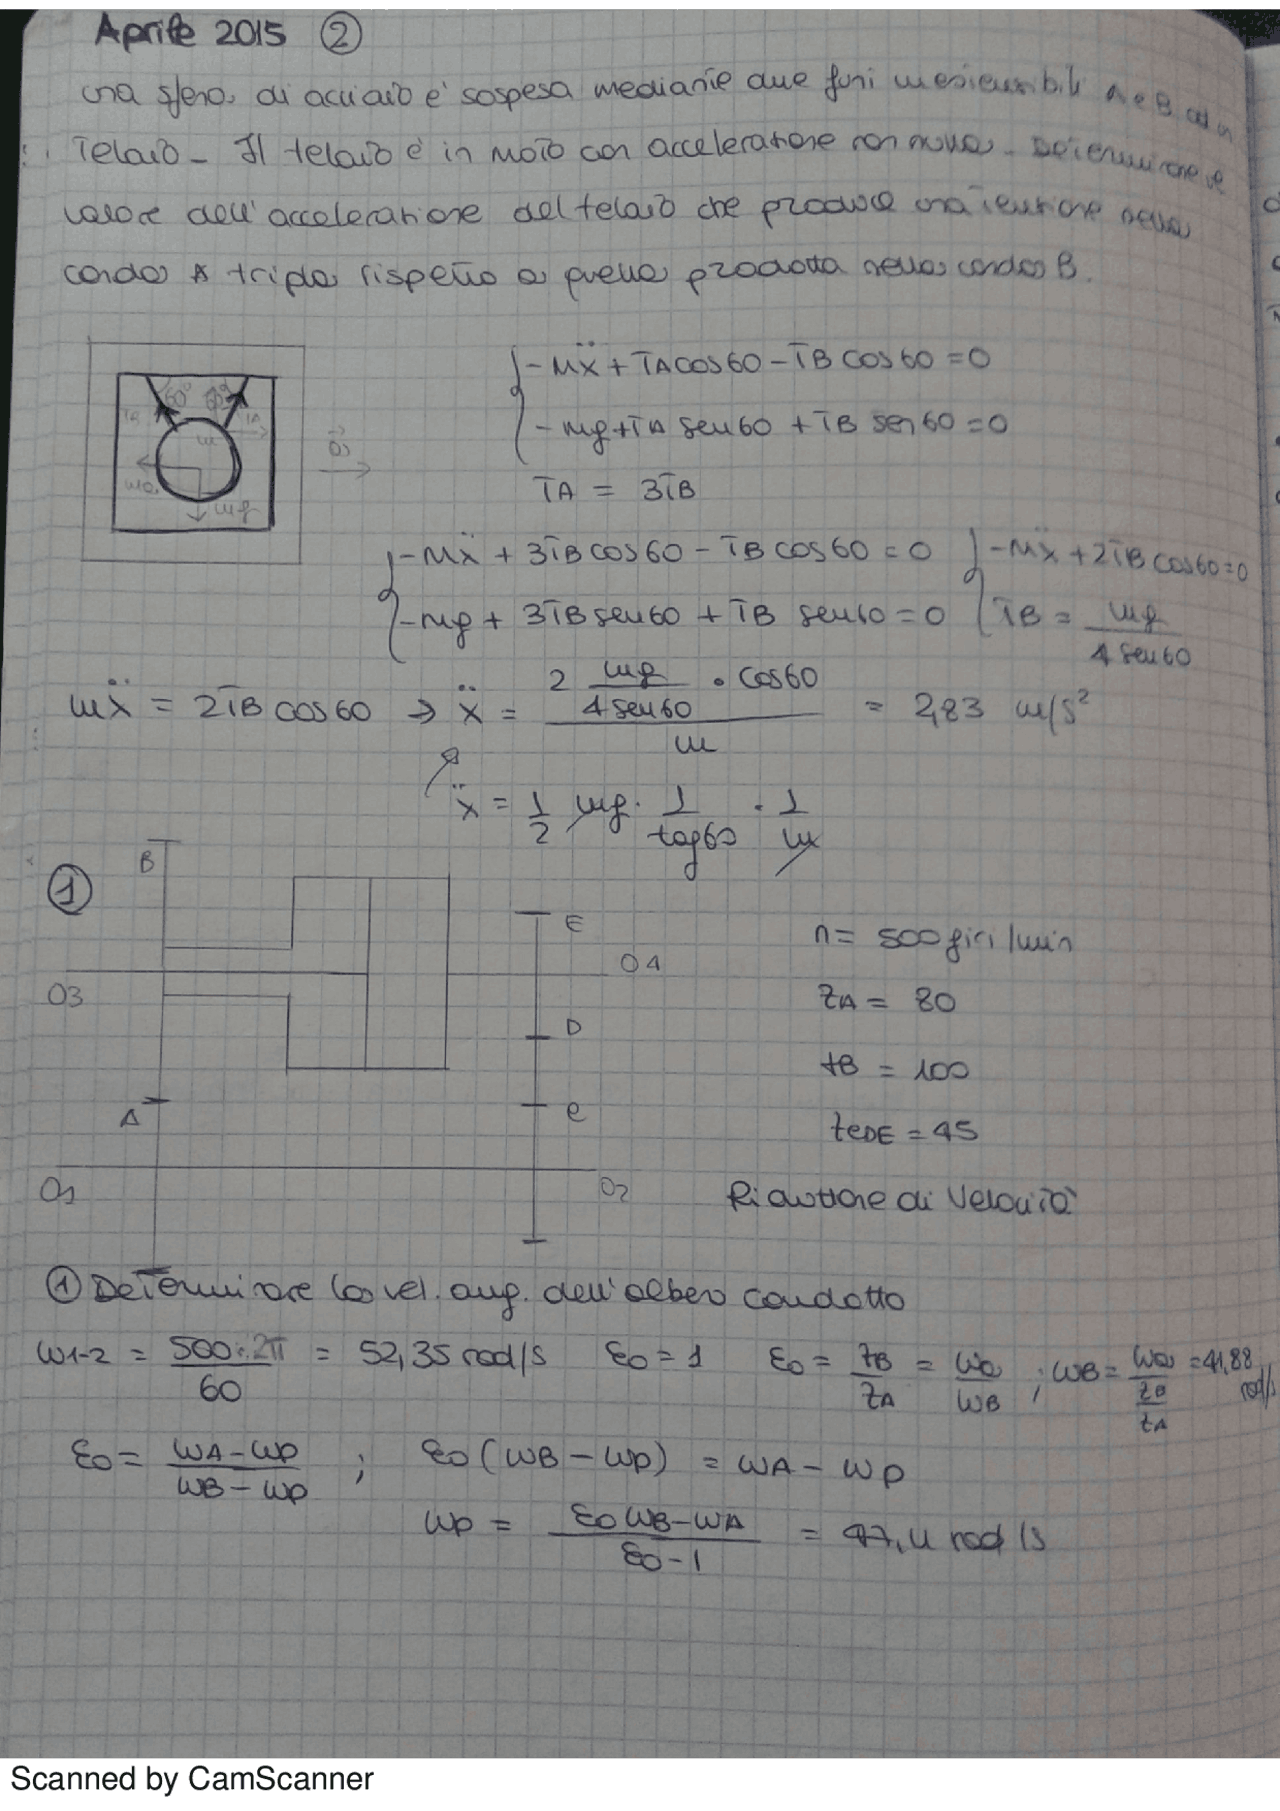 Aprile 2015 ②
una sfera di acciaio e' sospesa mediante due funi inestensibili A e B ad un
Telaio - Il telaio è in moto con accelerazione non nulla - Determinare il
valore dell'accelerazione del telaio che produce una tensione nella
corda A tripla rispetto a quella prodotta nella corda B.
60° 60°
TB TA
m
ma
mg
a
-mẍ + TA cos60 - TB cos60 = 0
-mg + TA sen60 + TB sen60 = 0
TA = 3TB
-mẍ + 3TB cos60 - TB cos60 = 0
-mẍ + 2TB cos60 = 0
-mg + 3TB sen60 + TB sen60 = 0
TB = mg / 4 sen60
mẍ = 2TB cos60 → ẍ = 2 mg / 4 sen60 · cos60 / m = 2,83 m/s²
ẍ = 1/2 mg · 1/tag60 · 1/m
①
B
E
O4
O3
D
A
C
O1
O2
n = 500 giri/min
zA = 80
zB = 100
zCDE = 45
Riduttore di Velocità
① Determinare la vel. ang. dell'albero condotto
ω1-2 = 500·2π / 60 = 52,35 rad/s εo = 1 εo = zB / zA = ωa / ωB ; ωB = ωa / zB / zA = 41,88 rad/s
εo = ωA - ωp / ωB - ωp ; εo (ωB - ωp) = ωA - ωp
ωp = εo ωB - ωA / εo - 1 = 47,11 rad/s
Scanned by CamScanner